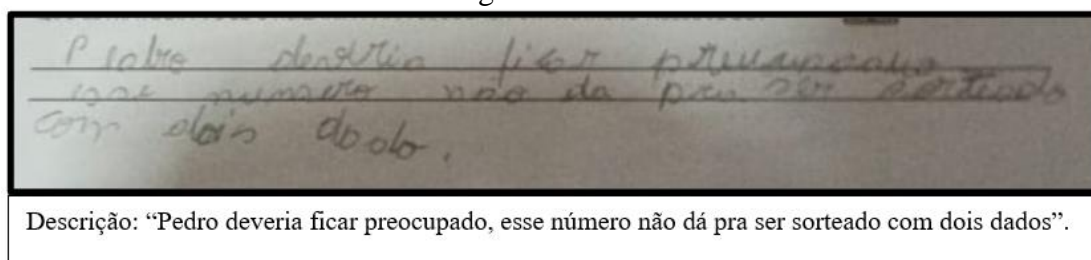 P lobro deveria ficar preucupado
esse numero não da pra ser sorteado
com dois dado.
Descrição: “Pedro deveria ficar preocupado, esse número não dá pra ser sorteado com dois dados”.